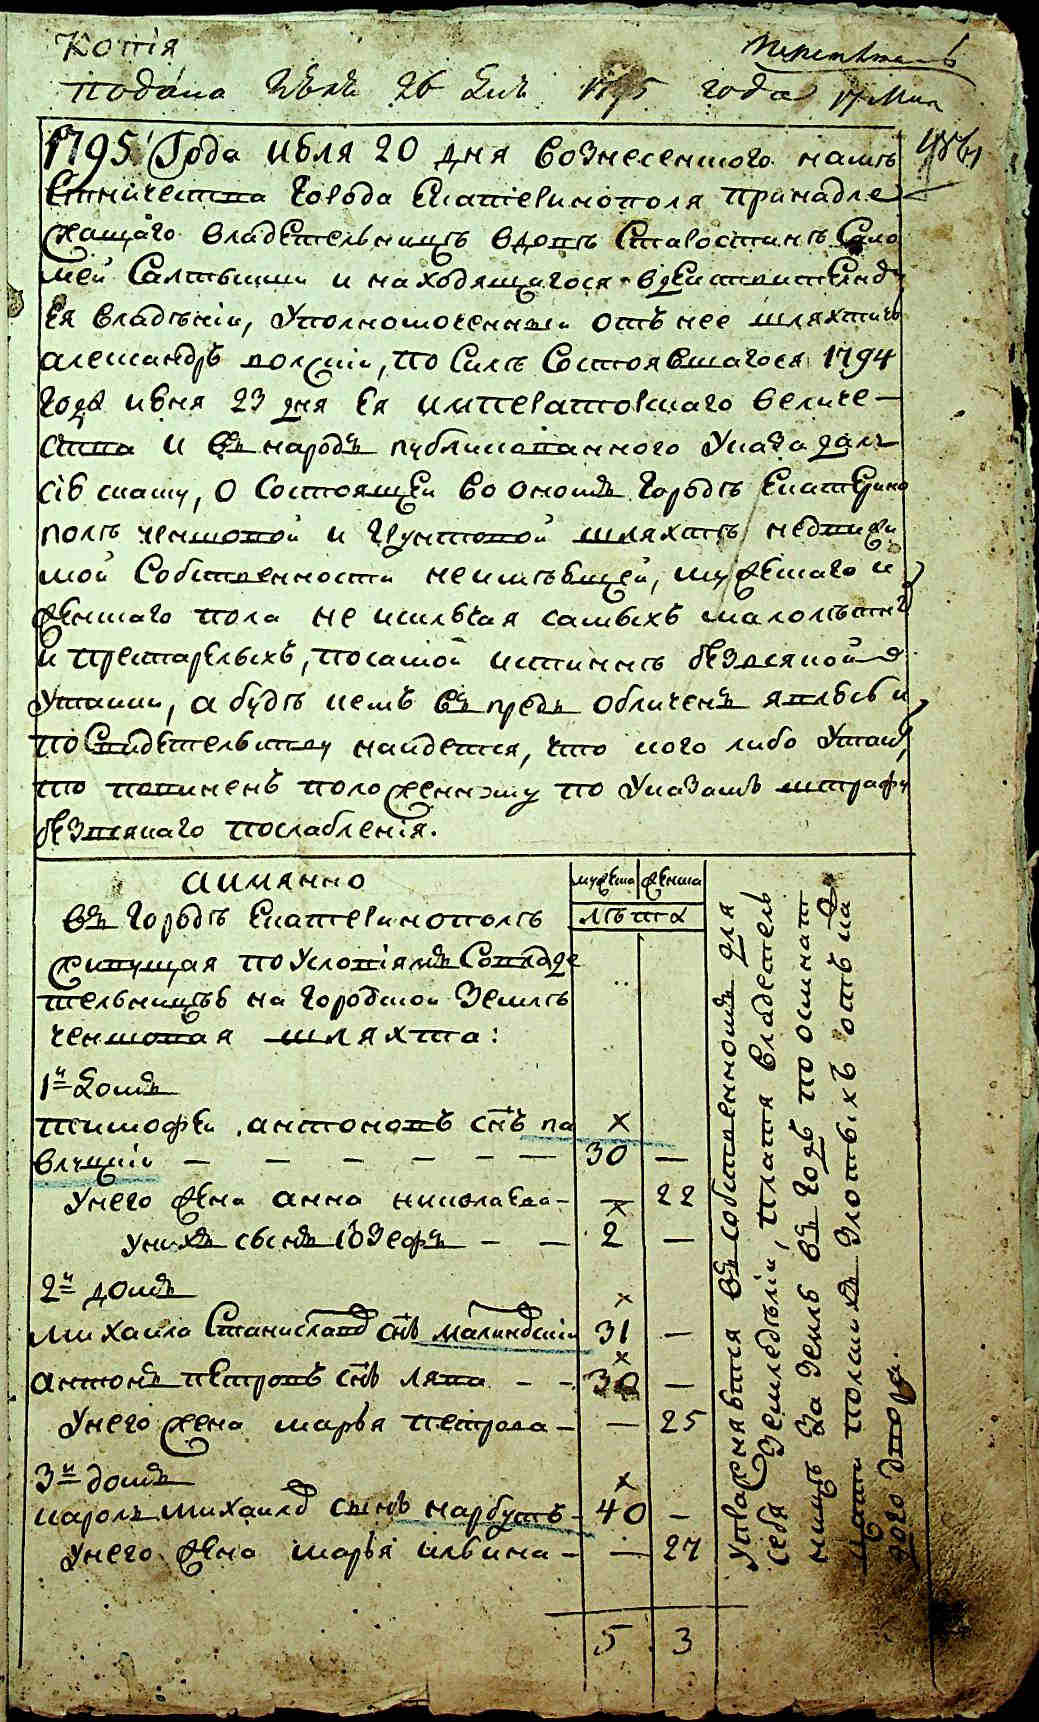 Копія
подана 26 1795 года
17 Мая
1795 Года июля 20 дня вознесенского намѣ
стничества города Екатеринополя принадле
жащаго владѣтельницѣ вдовѣ Старостинѣ Сало
меи и находящагося вдействительномъ
Ея владѣніи, уполномоченныи отъ нее шляхтичъ
александръ волскіи, по силѣ Состоявшагося 1794
года июня 23 дня Ея императорскаго величе-
ства и въ народъ публикованнаго указа далъ
сію скаску, о Состоящеи во ономъ городѣ Екатерино
полѣ чиншовой и грунтовой шляхтѣ недвижи
мой собственности неимѣющей, мужескаго и
женскаго пола не исключая самыхъ малолѣтнихъ
и престарелыхъ, посамой истиннѣ безвсякой
утайки, а будѣ кемъ въ предъ обличенъ явлюсь и
по Свидетельству найдется, что кого либо утаилъ,
то повиненъ положенному по указамъ штрафу
безвсякаго послабленія.
аимянно
мужеска женска
лѣта
въ городѣ Екатеринополѣ
живущая поУсловіямъ Совладе
тельницею на городской землѣ
чиншовая шляхта:
1й домъ
тимофеи антоновъ снъ па
влуцкіи — — — — — — 30 —
Унего жена анна николаева — — 22
Унихъ сынъ іозефъ — — 2 —
2й домъ
михаила Станиславовъ снъ малиновскіи 31 —
антонъ петровъ снъ лява — — 30 —
Унего жена марья петрова — — 25
3й домъ
кароль михаиловъ сынъ нарбутъ — 40 —
Унего жена марья ильина — — 27
5 3
Упражняются въ собственномъ для
себя земледѣліи, платя владетель
ницѣ за землю въ годъ по осминат
цати польскихъ злотыхъ отъ каж
дого двора.